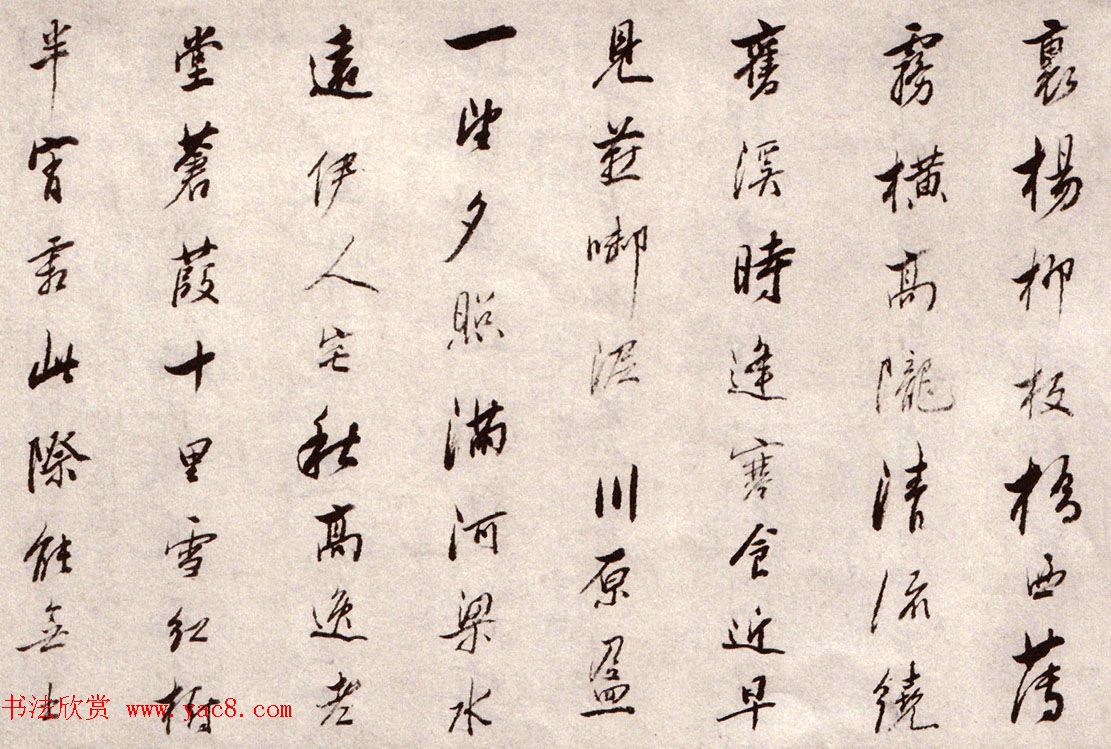 裏楊柳板橋西薄
霧橫高隴清流繞
舊溪時逢寒食近早
見燕啣泥川原盈
一望夕照滿河梁水
遠伊人宅秋高逸老
堂蒼葭十里雪紅樹
半宵霜此際能無
书法欣赏 www.yac8.com